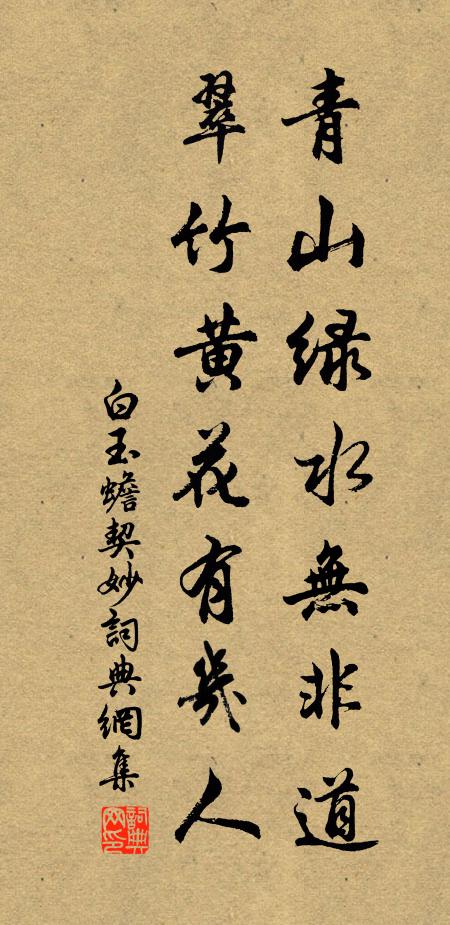 青山緑水無非道
翠竹黄花有幾人
白玉蟾契妙詞典網集
詞典網印